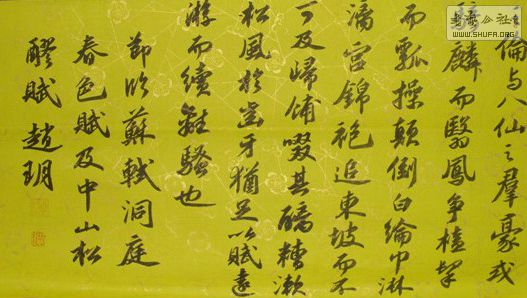 之倫与八仙之羣豪或
騎麟而翳鳳争榼挈
而瓢操顛倒白綸巾淋
漓宮錦袍追東坡而不
可及歸餔啜其醨糟漱
松風於齒牙猶足以賦遠
游而續離騷也
節臨蘇軾洞庭
春色賦及中山松
醪賦 趙玥
書法公社
WWW.SHUFA.ORG